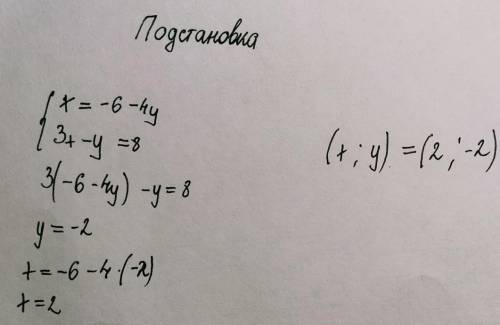 Подстановка
{ x = -6 - 4y
3x - y = 8
3(-6 - 4y) - y = 8
y = -2
x = -6 - 4 · (-2)
x = 2
(x ; y) = (2 ; -2)